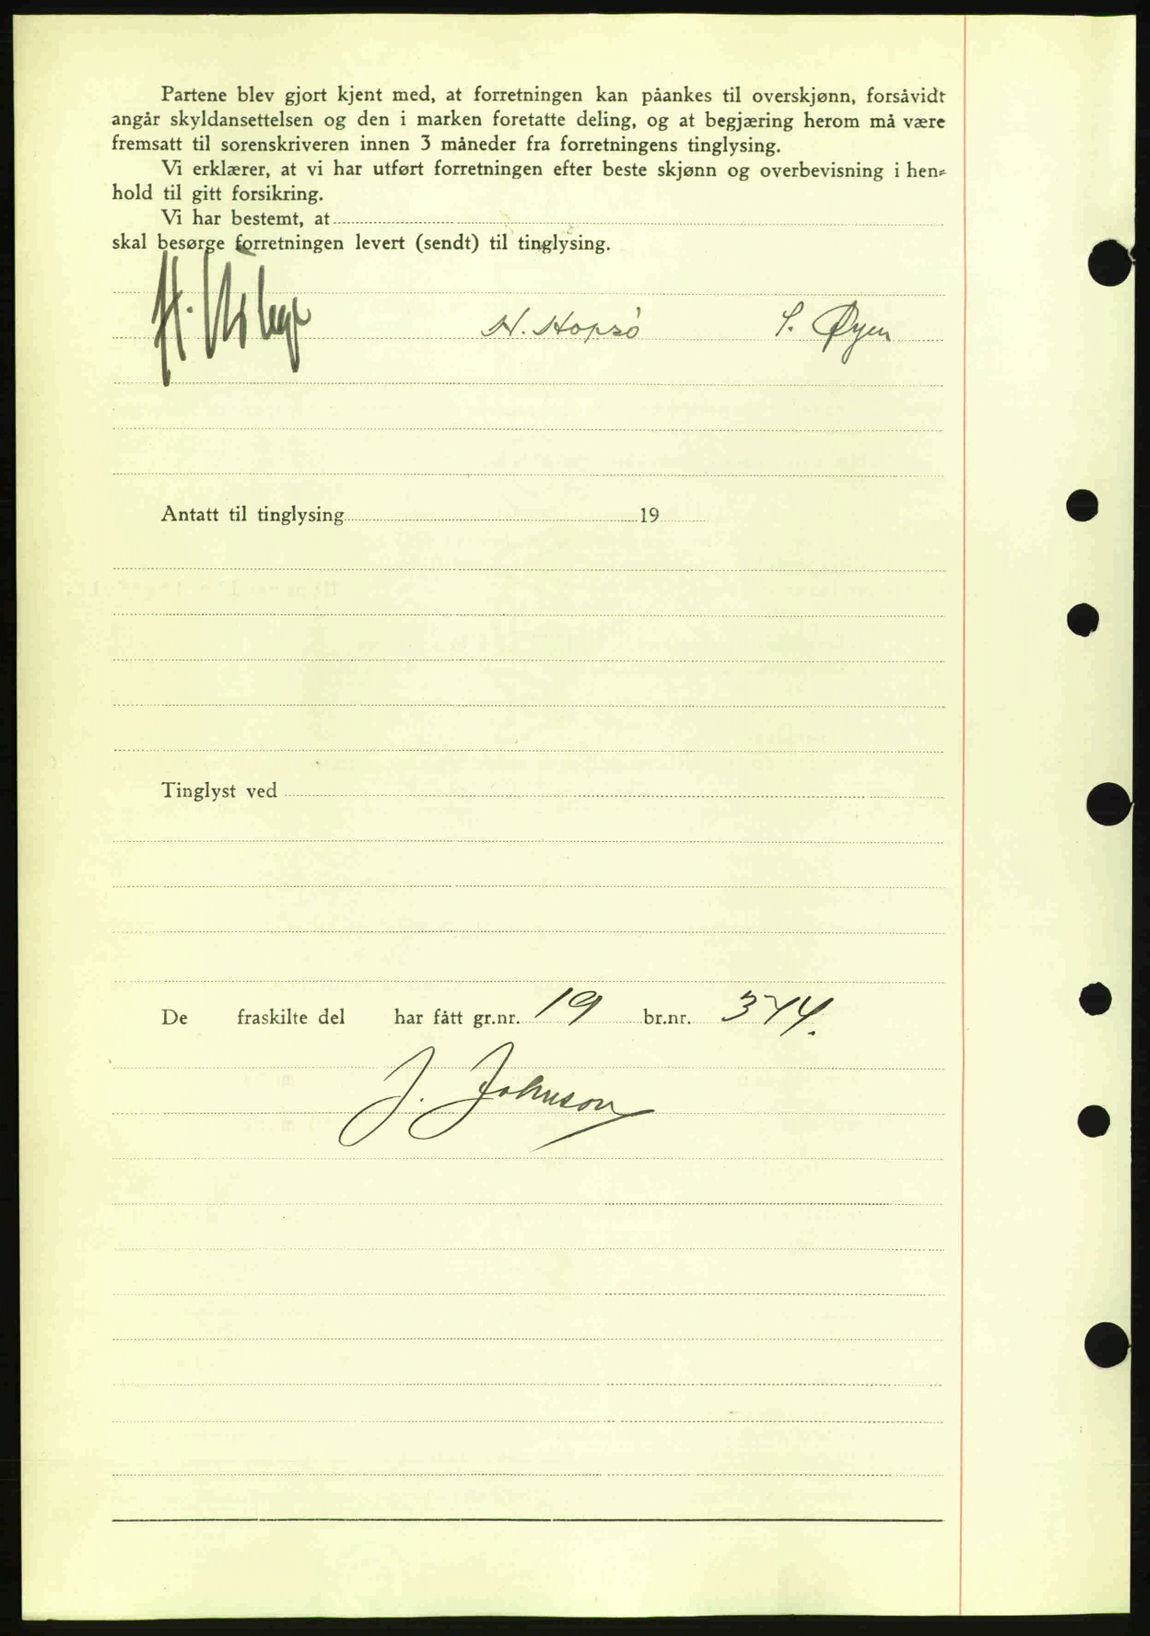 Partene blev gjort kjent med, at forretningen kan påankes til overskjønn, forsåvidt
angår skyldansettelsen og den i marken foretatte deling, og at begjæring herom må være
fremsatt til sorenskriveren innen 3 måneder fra forretningens tinglysing.
Vi erklærer, at vi har utført forretningen efter beste skjønn og overbevisning i hen-
hold til gitt forsikring.
Vi har bestemt, at
skal besørge forretningen levert (sendt) til tinglysing.
H. N. Hopsö S. Øyen
Antatt til tinglysing 19
Tinglyst ved
De fraskilte del har fått gr.nr. 19 br.nr. 344.
J. Johnson